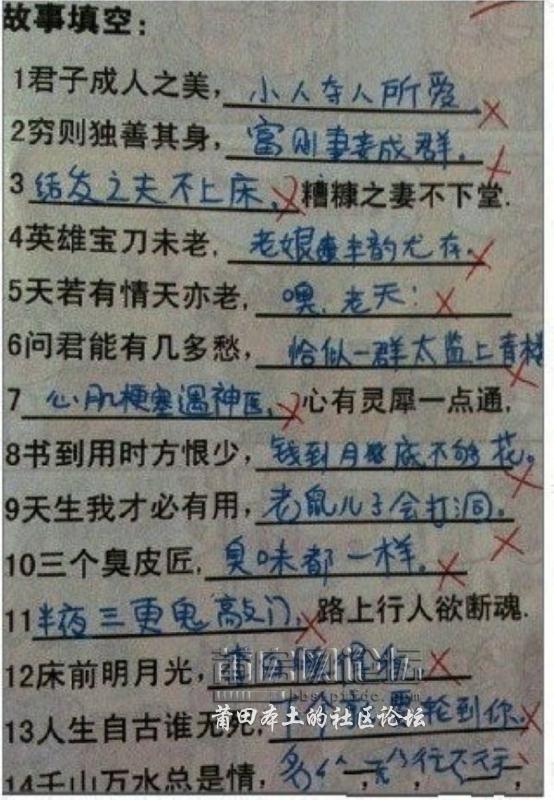 故事填空：
1君子成人之美，小人夺人所爱 ×
2穷则独善其身，富则妻妾成群。×
3结发之夫不上床，×糟糠之妻不下堂.
4英雄宝刀未老，老娘丰韵尤存。×
5天若有情天亦老，噢，老天！×
6问君能有几多愁，恰似一群太监上青楼
7心肌梗塞遇神医，×心有灵犀一点通，
8书到用时方恨少，钱到月底不够花。×
9天生我才必有用，老鼠儿子会打洞。×
10三个臭皮匠，臭味都一样。×
11半夜三更鬼敲门，×路上行人欲断魂.
12床前明月光，×
13人生自古谁无死，轮到你。×
莆田本土的社区论坛
14千山万水总是情，多个"元"行不行，